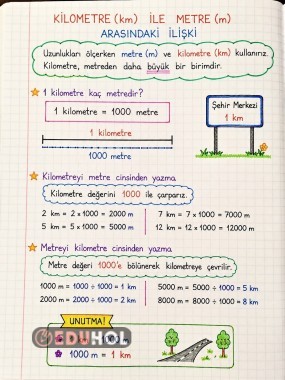 KİLOMETRE (km) İLE METRE (m)
ARASINDAKİ İLİŞKİ
Uzunlukları ölçerken metre (m) ve kilometre (km) kullanırız.
Kilometre, metreden daha büyük bir birimdir.
1 kilometre kaç metredir?
1 kilometre = 1000 metre
Şehir Merkezi
1 km
1 kilometre
1000 metre
Kilometreyi metre cinsinden yazma
Kilometre değerini 1000 ile çarparız.
2 km = 2 x 1000 = 2000 m
7 km = 7 x 1000 = 7000 m
5 km = 5 x 1000 = 5000 m
12 km = 12 x 1000 = 12000 m
Metreyi kilometre cinsinden yazma
Metre değeri 1000'e bölünerek kilometreye çevrilir.
1000 m = 1000 ÷ 1000 = 1 km
5000 m = 5000 ÷ 1000 = 5 km
2000 m = 2000 ÷ 1000 = 2 km
8000 m = 8000 ÷ 1000 = 8 km
UNUTMA!
1000 m
1000 m = 1 km
EDUHOL